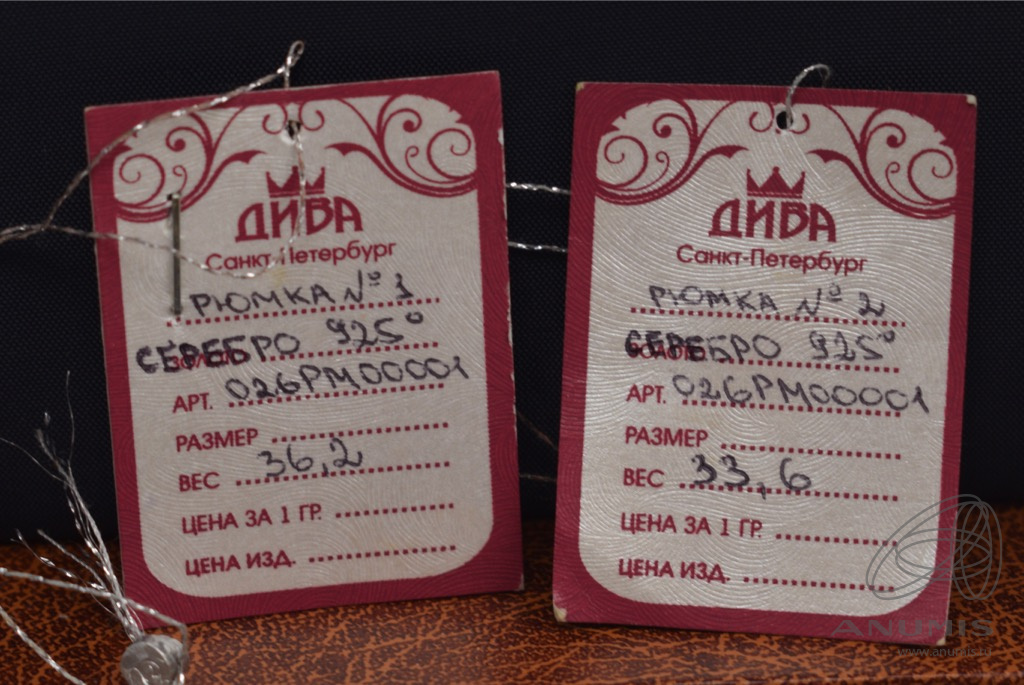 ДИВА
Санкт-Петербург
РЮМКА № 1
СЕРЕБРО 925°
АРТ. 026РМ00001
РАЗМЕР
ВЕС 36,2
ЦЕНА ЗА 1 ГР.
ЦЕНА ИЗД.
ДИВА
Санкт-Петербург
РЮМКА № 2
СЕРЕБРО 925°
АРТ. 026РМ00001
РАЗМЕР
ВЕС 33,6
ЦЕНА ЗА 1 ГР.
ЦЕНА ИЗД.
ANUMIS
www.anumis.ru